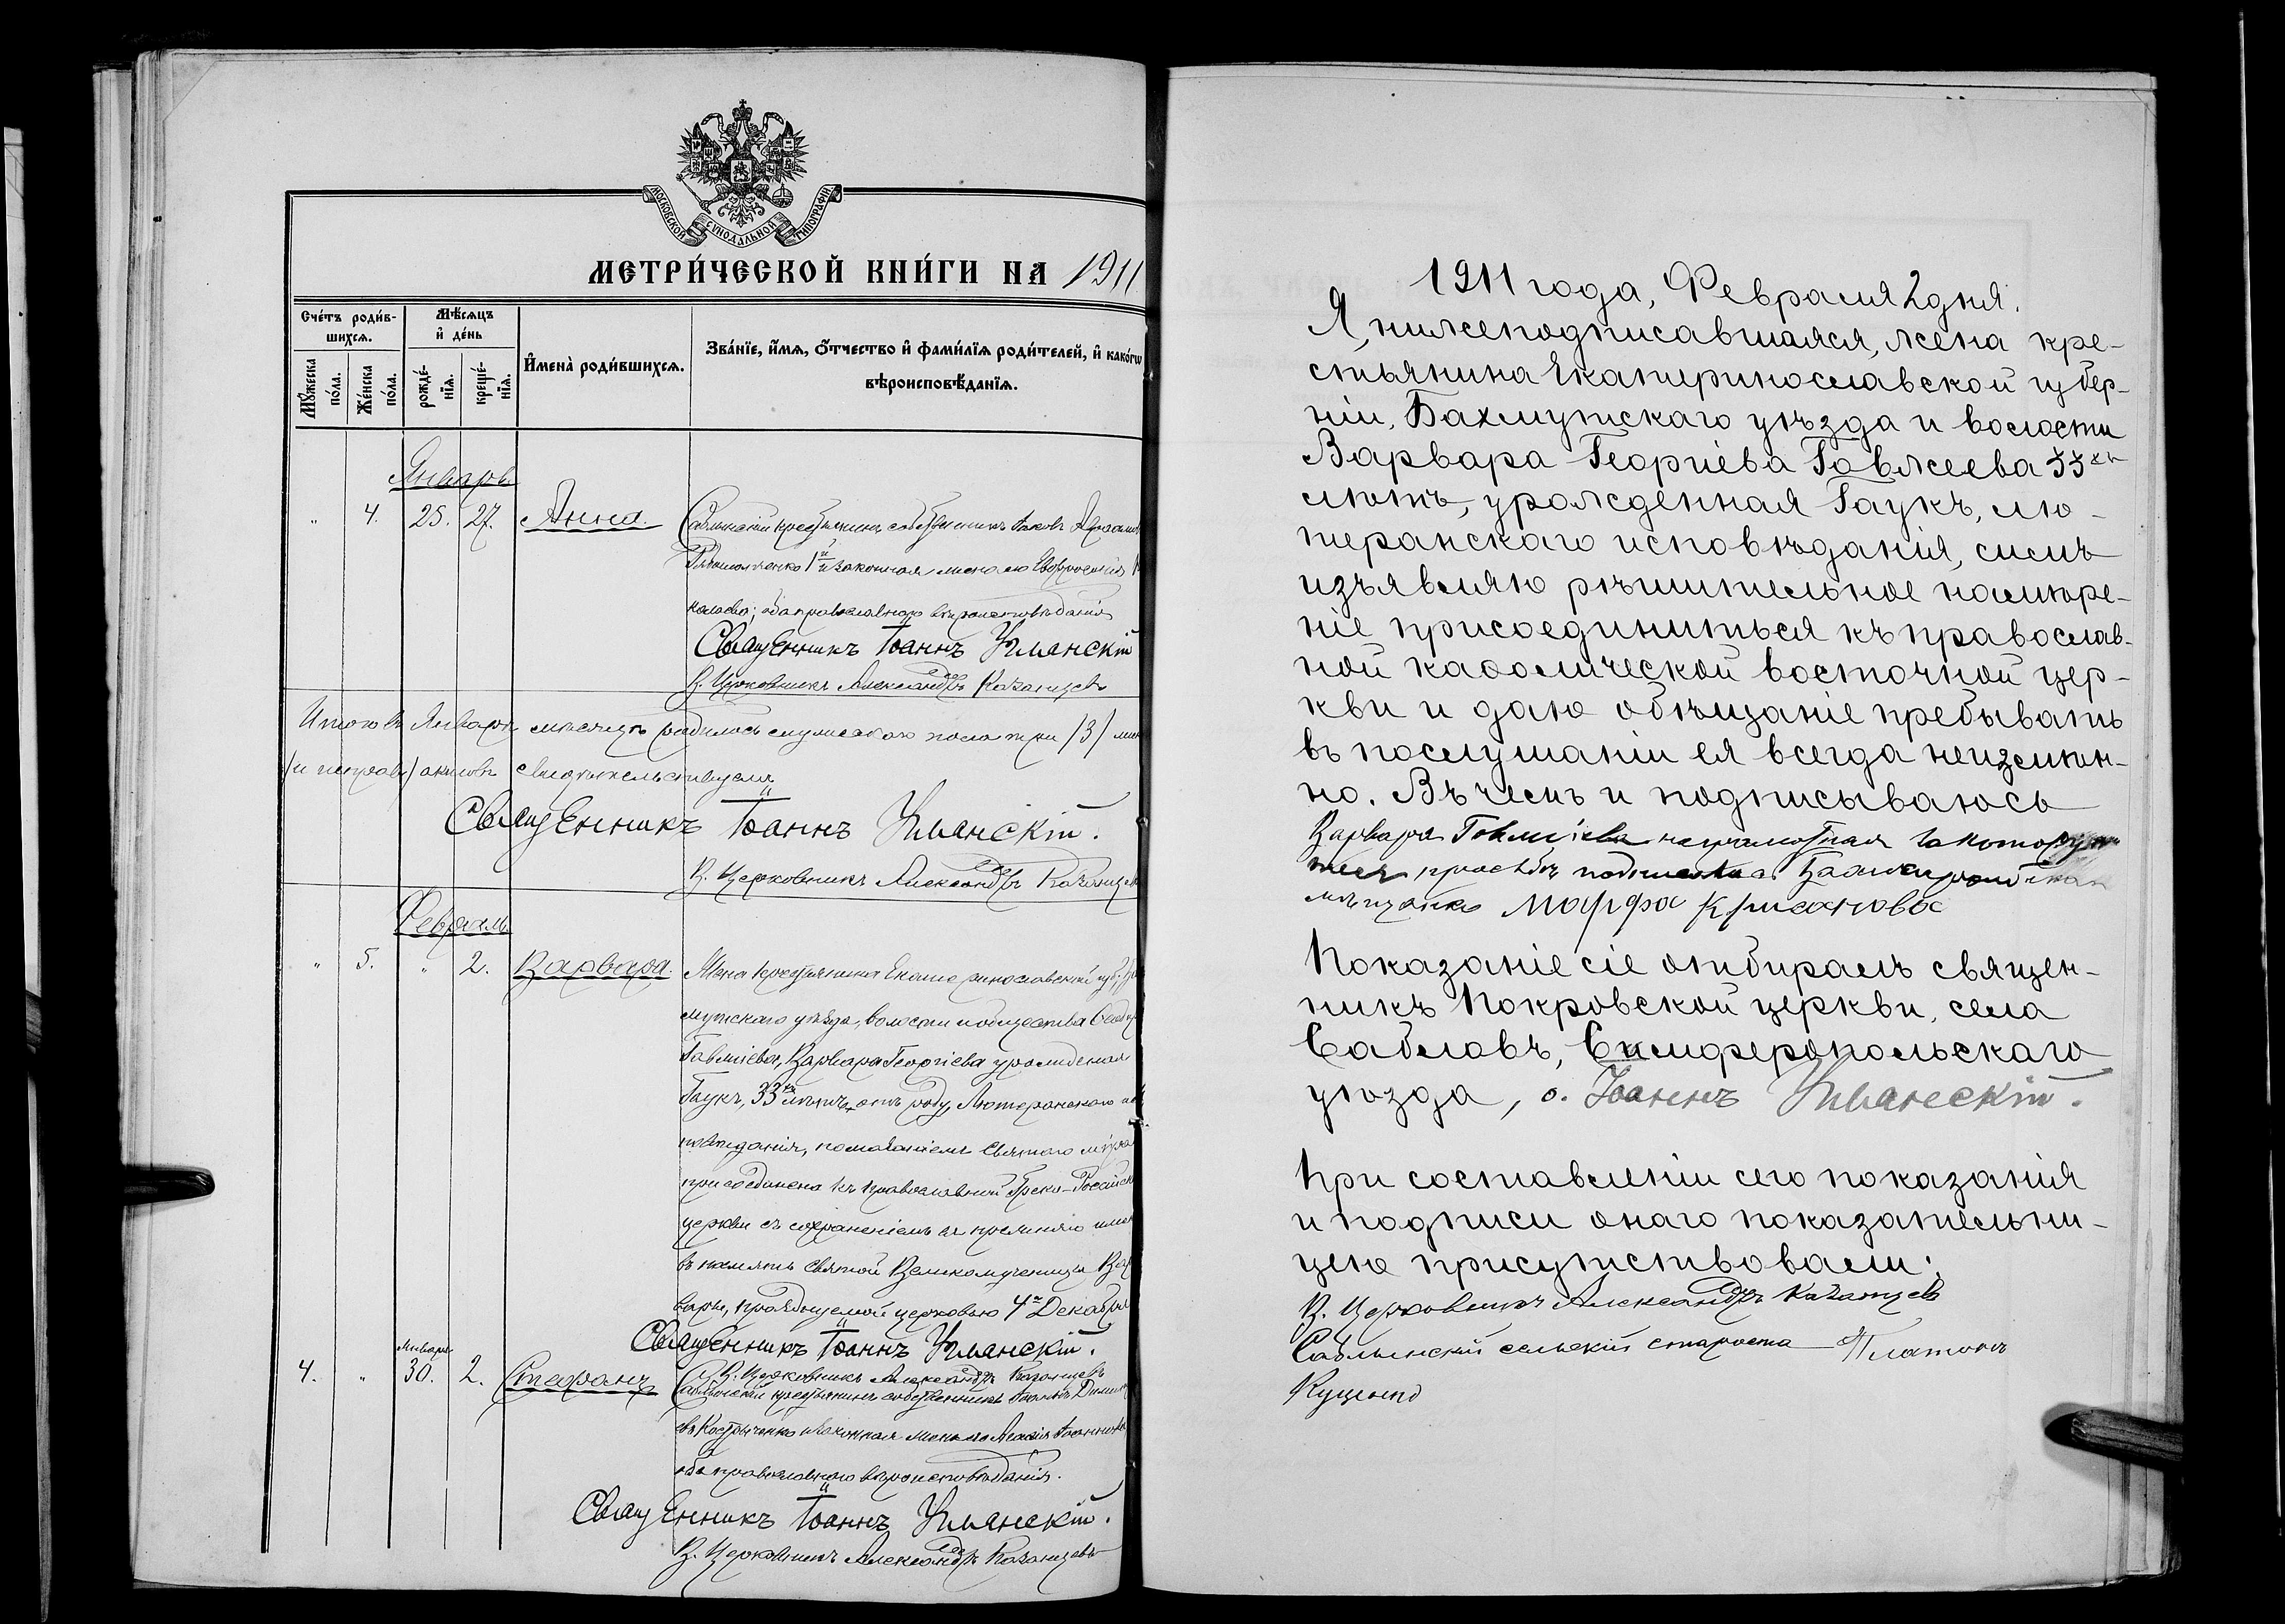 МОСКОВСКОЙ СѴНОДАЛЬНОЙ ТИПОГРАФІИ
МЕТРИ́ЧЕСКОЙ КНИ́ГИ НА 1911
Сче́тъ роди́вшихсѧ.
Мꙋ́жеска по́ла.
Же́нска по́ла.
Мѣ́сѧцъ и҆ де́нь
рожде́нїѧ.
креще́нїѧ.
И҆мена̀ роди́вшихсѧ.
Зва́нїе, и҆́мѧ, ѻ҆́тчество и҆ фами́лїѧ роди́телей, и҆ како́гѡ
вѣроисповѣ́данїѧ.
Январь
" 4. 25. 27. Анна. Саблынскій крестьянинъ собственникъ Іаковъ
1й и законная жена его Евфросинія
обa православнаго вѣроисповѣданія
Священникъ Іоаннъ Уманскій
В. Церковникъ Александръ Казанцевъ
Итого въ Январѣ мѣсяцѣ родилось мужескаго пола три /3/
актовъ свидѣтельствуемъ
Священникъ Іоаннъ Уманскій.
В. Церковникъ Александръ Казанцевъ
Февраль
" 5. " 2. Варвара. Жена крестьянина Екатеринославской губ.,
мутскаго уѣзда, волости и общества
Гавжіева, Варвара Георгіева урожденная
Гаукъ, 33хъ лѣтъ отъ роду, Лютеранскаго
повѣданія, помазаніемъ Святаго мѵра
присоединена къ православной Греко-Россійск
церкви съ сохраненіемъ ея прежняго имен
въ память святой Великомученицы Вар
вары, празднуемой церковью 4го Декабря
Священникъ Іоаннъ Уманскій.
В. Церковникъ Александръ Казанцевъ
4. " Января 30. 2. Стефанъ Саблынскій крестьянинъ собственникъ
Костыченко и законная жена его Іоаннова
оба православнаго вѣроисповѣданія.
Священникъ Іоаннъ Уманскій.
В. Церковникъ Александръ Казанцевъ
1911 года, Февраля 2 дня.
Я, нижеподписавшаяся, жена кре-
стьянина Екатеринославской губер-
ніи, Бахмутскаго уѣзда и волости
Варвара Георгіева Гавжеева 33хъ
лѣтъ, урожденная Гаукъ, лю-
теранскаго исповѣданія, симъ
изъявляю рѣшительное намѣре-
ніе присоединиться къ православ-
ной каѳолической восточной цер-
кви и даю обѣщаніе пребывать
въ послушаніи ея всегда неизмѣн-
но. Въ чемъ и подписываюсь
Варвара Гавжіева неграмотная
просьбѣ
мѣщанка Марфа Крисанова
Показаніе сіе отбиралъ священ-
никъ Покровской церкви, села
Сабловъ, Симферопольскаго
уѣзда, о. Іоаннъ Уманскій.
При составленіи сего показанія
и подписи онаго показательни-
цею присутствовали:
В. Церковникъ Александръ Казанцевъ
Саблынскій сельскій староста Платонъ
Куценко